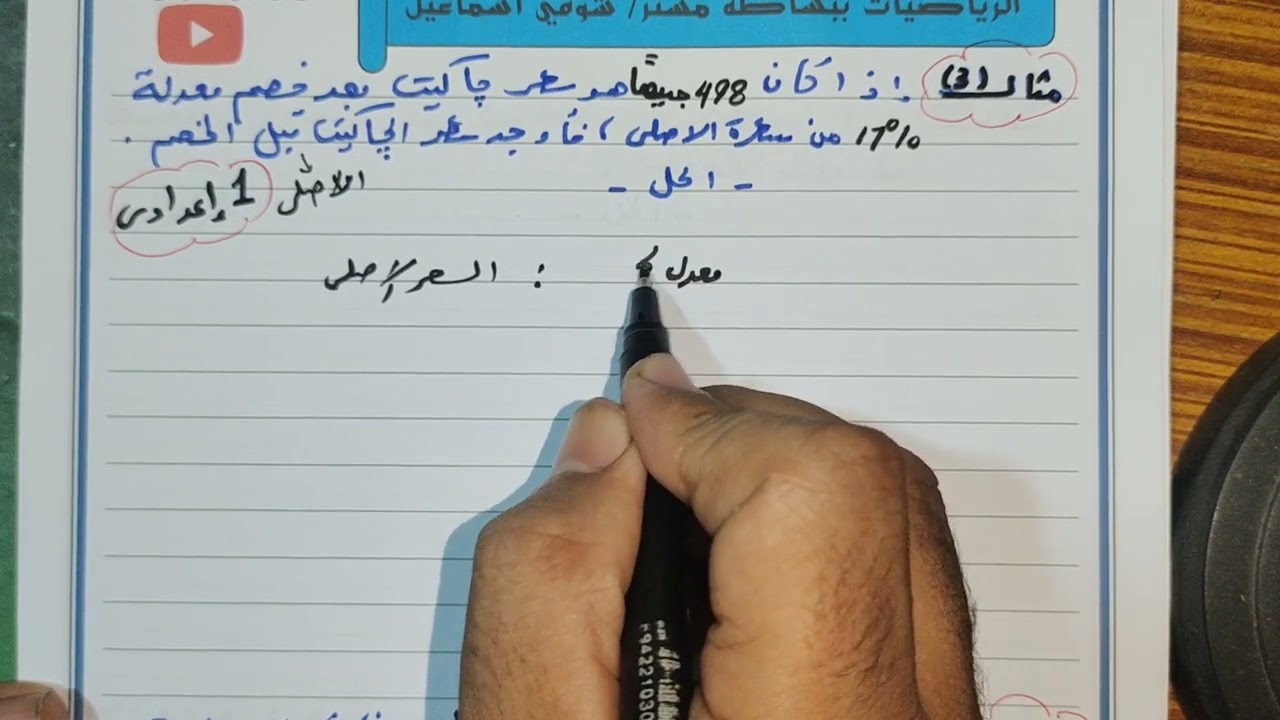 الرياضيات ببساطة مستر/ شوقي اسماعيل
مثال (3) إذا كان 498 جنيهًا هو سعر چاكيت بعد خصم معدلة
17% من سعرة الاصلى ، فأوجد سعر الچاكيت قبل الخصم .
- الحل -
الاصلى
1 إعدادى
معدل : السعر الاصلى